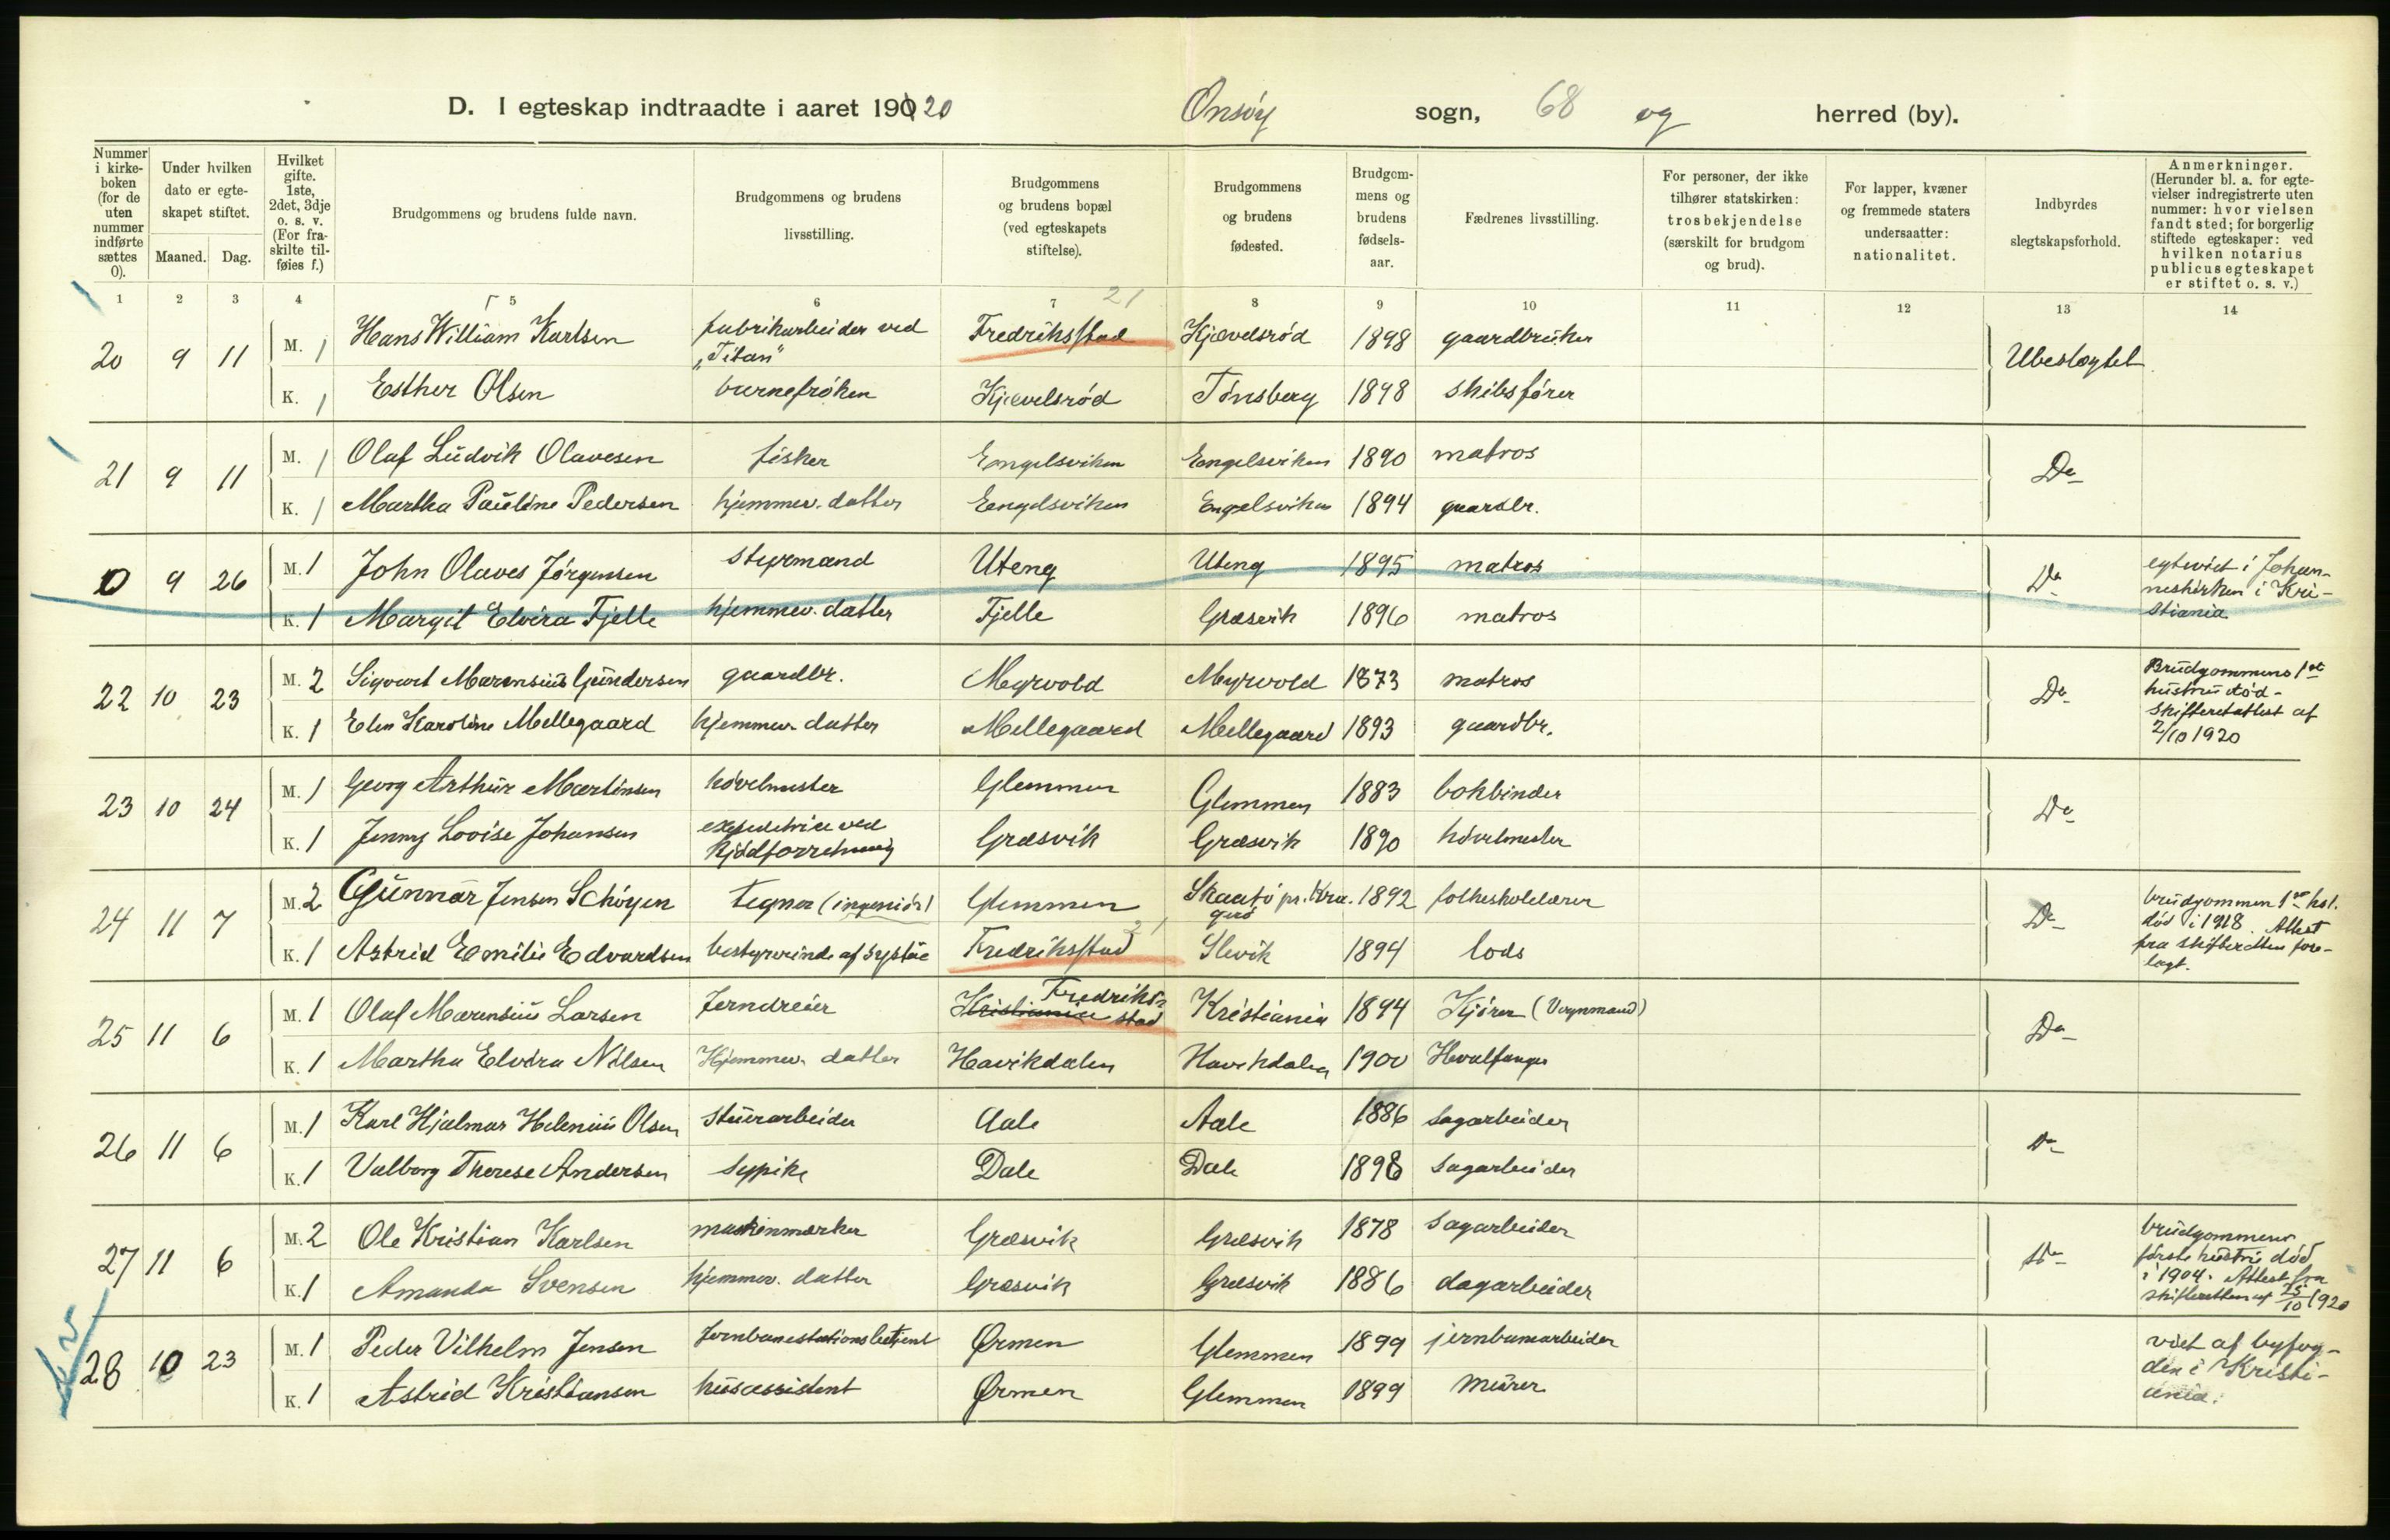 D. I egteskap indtraadte i aaret 1920 Onsøy sogn, 68 og herred (by).
Nummer i kirkeboken (for de uten nummer indførte sættes 0).
Under hvilken dato er egteskapet stiftet.
Maaned. Dag.
Hvilket gifte. 1ste, 2det, 3dje o. s. v. (For fraskilte tilføies f.)
Brudgommens og brudens fulde navn.
Brudgommens og brudens livsstilling.
Brudgommens og brudens bopæl (ved egteskapets stiftelse).
Brudgommens og brudens fødested.
Brudgommens og brudens fødselsaar.
Fædrenes livsstilling.
For personer, der ikke tilhører statskirken: trosbekjendelse (særskilt for brudgom og brud).
For lapper, kvæner og fremmede staters undersaatter: nationalitet.
Indbyrdes slegtskapsforhold.
Anmerkninger. (Herunder bl. a. for egtevielser indregistrerte uten nummer: hvor vielsen fandt sted; for borgerlig stiftede egteskaper: ved hvilken notarius publicus egteskapet er stiftet o. s. v.)
1 2 3 4 5 6 7 8 9 10 11 12 13 14
21
20 9 11 M. 1 Hans William Karlsen fabrikarbeider ved „Titan" Fredriksstad Kjævelsrød 1898 gaardbruker Ubeslegtet
K. 1 Esther Olsen barnefrøken Kjævelsrød Tønsberg 1898 skibsfører
21 9 11 M. 1 Olaf Ludvik Olavesen fisker Engelsviken Engelsviken 1890 matros Do
K. 1 Martha Pauline Pedersen hjemmev. datter Engelsviken Engelsviken 1894 gaardbr.
0 9 26 M. 1 John Olaves Jørgensen styrmand Uteng Uteng 1895 matros Do egteviet i Johanneskirken i Kristiania
K. 1 Margit Elvira Fjelle hjemmev. datter Fjelle Græsvik 1896 matros
22 10 23 M. 2 Sigvart Marensius Gundersen gaardbr. Myrvold Myrvold 1873 matros Do Brudgommens 1st hustru død - skifteretattest af 2/10 1920
K. 1 Elen Karoline Mellegaard hjemmev. datter Mellegaard Mellegaard 1893 gaardbr.
23 10 24 M. 1 Georg Arthur Martinsen høvelmester Glemmen Glemmen 1883 bokbinder Do
K. 1 Jenny Lovise Johansen expeditrice ved kjødforretning Græsvik Græsvik 1890 høvelmester
24 11 7 M. 2 Gunnar Jensen Schøyen tegner (ingeniør) Glemmen Skaatø pr. Kra.gerø 1892 folkeskolelærer Do brudgommen 1ste hst. død i 1918. Attest fra skifteretten forelagt.
21
K. 1 Astrid Emilie Edvardsen bestyrerinde af systue Fredriksstad Slevik 1894 lods
25 11 6 M. 1 Olaf Marensius Larsen Jerndreier Kristiania Fredriksstad Kristiania 1894 Kjører (Vognmand) Do
K. 1 Martha Elvira Nilsen Hjemmev. datter Havikdalen Havikdalen 1900 Hvalfanger
26 11 6 M. 1 Karl Hjalmar Helenius Olsen stuerarbeider Aale Aale 1886 sagarbeider Do
K. 1 Valborg Therese Andersen sypike Dale Dale 1898 sagarbeider
27 11 6 M. 2 Ole Kristian Karlsen maskinmærker Græsvik Græsvik 1878 sagarbeider Do brudgommens første hustru død i 1904. Attest fra skifteretten af 25/10 1920
K. 1 Amanda Svensen hjemmev. datter Græsvik Græsvik 1886 dagarbeider
28 10 23 M. 1 Peder Vilhelm Jensen Jernbanestationsbetjent Ørmen Glemmen 1899 jernbanearbeider viet af byfogden i Kristiania.
K. 1 Astrid Kristiansen husassistent Ørmen Glemmen 1899 murer